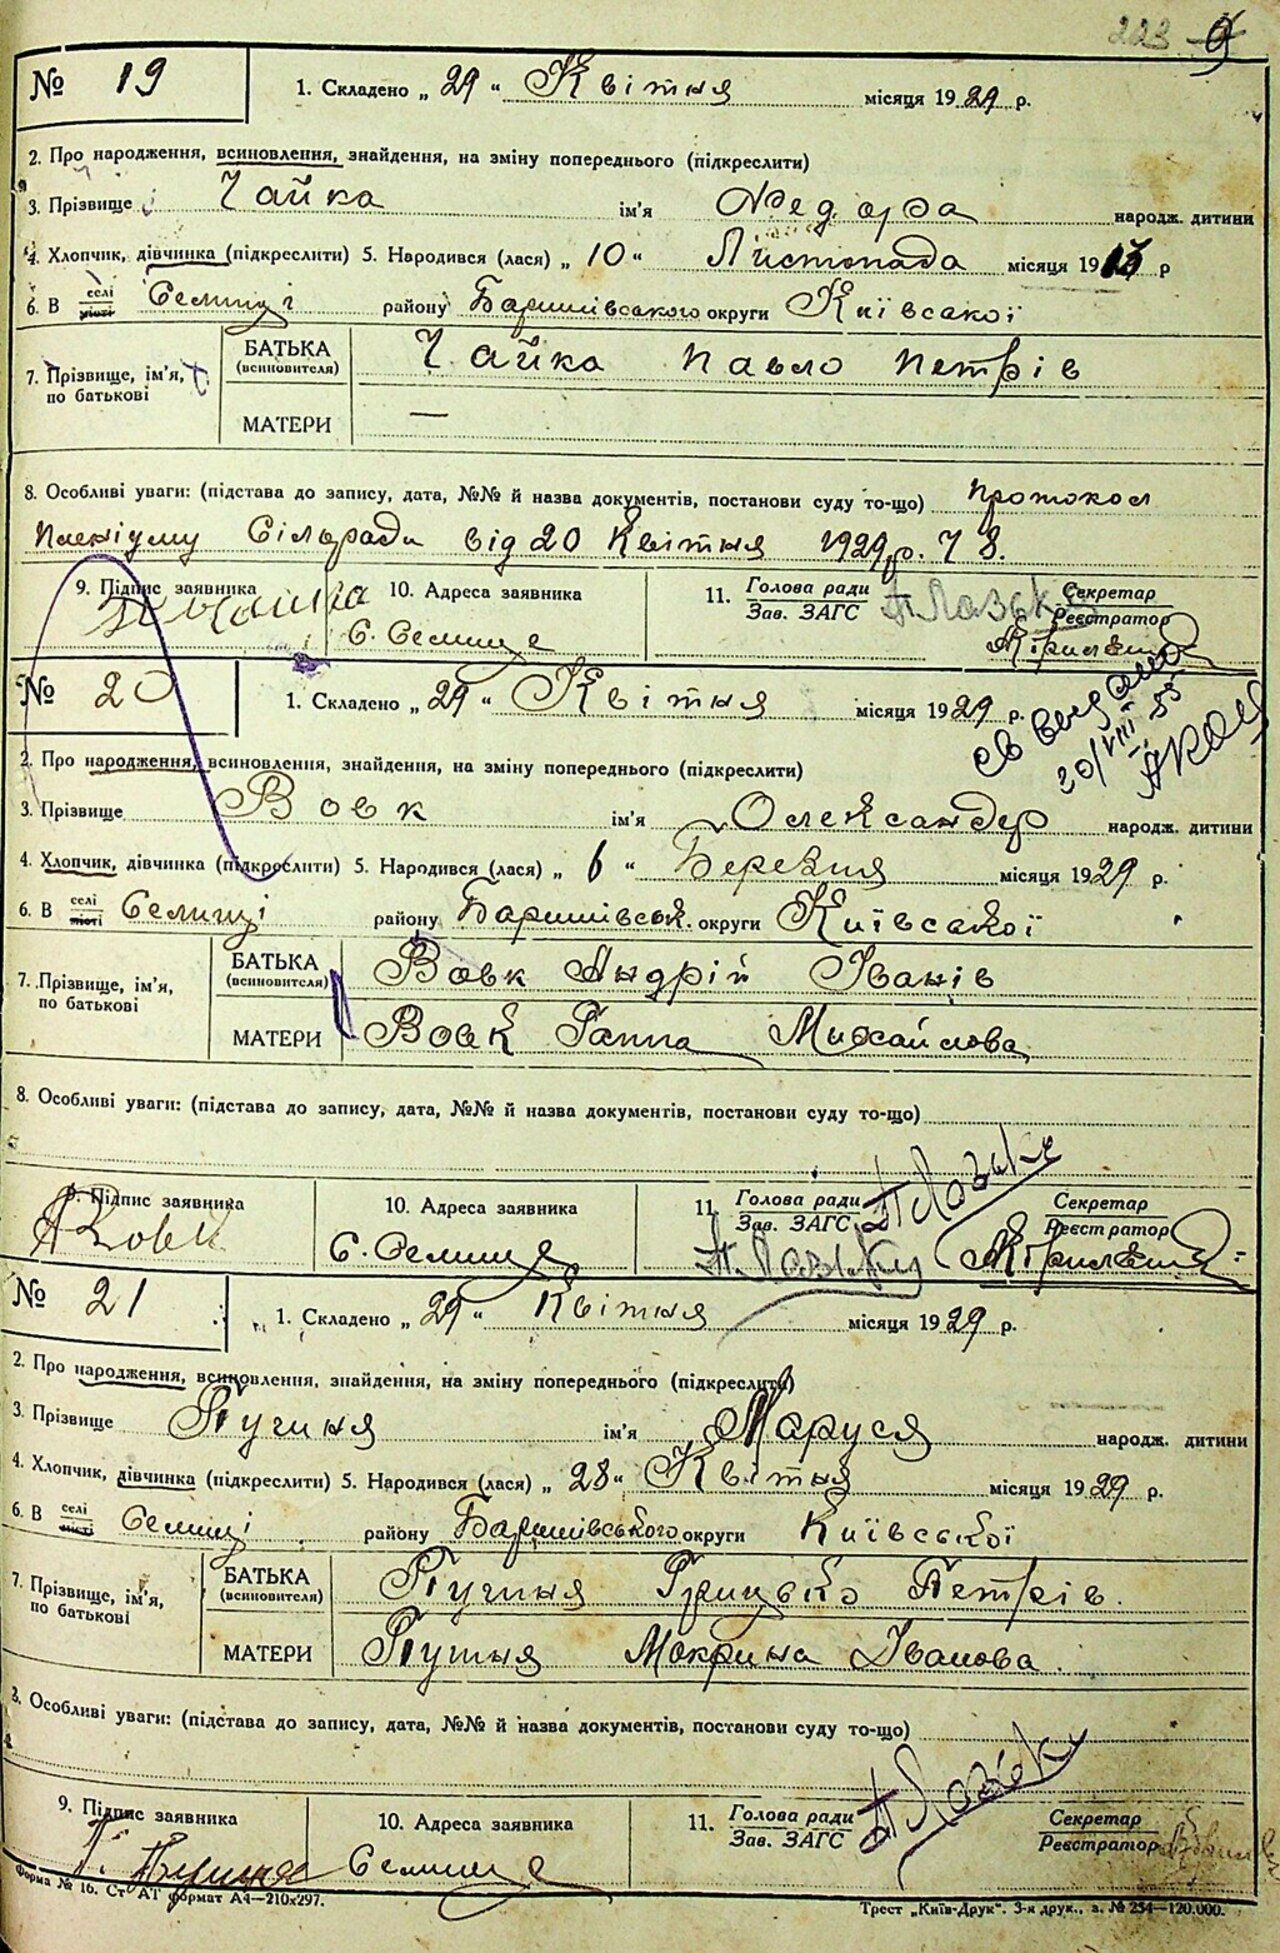 223 9
№ 19
1. Складено „ 29 “ Квітня місяця 1929 р.
2. Про народження, всиновлення, знайдення, на зміну попереднього (підкреслити)
3. Прізвище Чайка ім'я Федора народж. дитини
4. Хлопчик, дівчинка (підкреслити) 5. Народився (лася) „ 10 “ Листопада місяця 1913 р
6. В селі місті Селищі району Баришівського округи Київської
7. Прізвище, ім'я, по батькові
БАТЬКА (всиновителя) Чайка Павло Петрів
МАТЕРИ —
8. Особливі уваги: (підстава до запису, дата, №№ й назва документів, постанови суду то-що) Протокол
Пленіуму Сільради від 20 Квітня 1929 р. Ч 8.
9. Підпис заявника
10. Адреса заявника
С. Селище
11. Голова ради Зав. ЗАГС
Секретар Реєстратор
№ 20
1. Складено „ 29 “ Квітня місяця 1929 р.
20/VIII 55
2. Про народження, всиновлення, знайдення, на зміну попереднього (підкреслити)
3. Прізвище Вовк ім'я Олександер народж. дитини
4. Хлопчик, дівчинка (підкреслити) 5. Народився (лася) „ 6 “ Березня місяця 1929 р.
6. В селі місті Селищі району Баришівськ. округи Київської
7. Прізвище, ім'я, по батькові
БАТЬКА (всиновителя) Вовк Андрій Іванів
МАТЕРИ Вовк Ганна Михайлова
8. Особливі уваги: (підстава до запису, дата, №№ й назва документів, постанови суду то-що)
9. Підпис заявника
А Вовк
10. Адреса заявника
С. Селище
11. Голова ради Зав. ЗАГС
Секретар Реєстратор
№ 21
1. Складено „ 29 “ Квітня місяця 1929 р.
2. Про народження, всиновлення, знайдення, на зміну попереднього (підкреслити)
3. Прізвище Пугиня ім'я Маруся народж. дитини
4. Хлопчик, дівчинка (підкреслити) 5. Народився (лася) „ 28 “ Квітня місяця 1929 р.
6. В селі місті Селищі району Баришівського округи Київської
7. Прізвище, ім'я, по батькові
БАТЬКА (всиновителя) Пугиня Грицько Петрів.
МАТЕРИ Мокрина Іванова.
8. Особливі уваги: (підстава до запису, дата, №№ й назва документів, постанови суду то-що)
9. Підпис заявника
10. Адреса заявника
Селище
11. Голова ради Зав. ЗАГС
Секретар Реєстратор
Форма № 16. Ст АТ формат А4—210х297.
Трест „Київ-Друк“. 3-я друк., з. № 254—120.000.